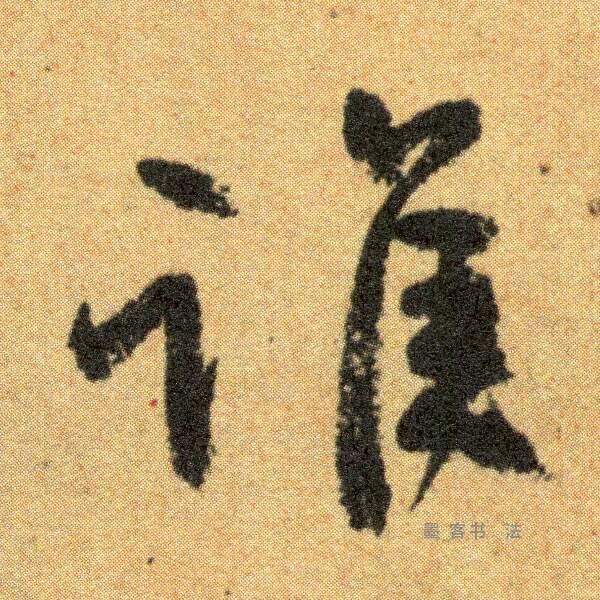 護
墨客书 法